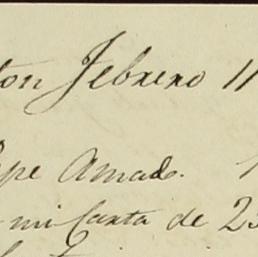 ton Febrero 11
Pepe Amado.
mi Carta de 23